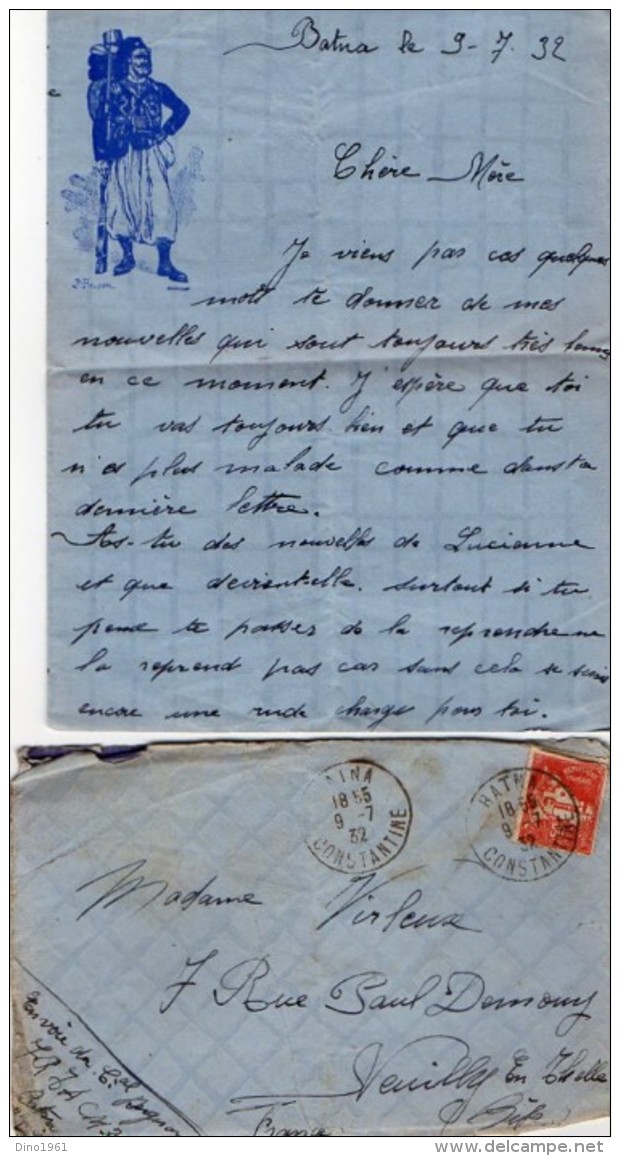 Batna le 9-7. 32
Chère Mère
Je viens par ces quelques
mots te donner de mes
nouvelles qui sont toujours très bonnes
en ce moment. J'espère que toi
tu vas toujours bien et que tu
n'es plus malade comme dans ta
dernière lettre.
As-tu des nouvelles de Lucienne
et que devient elle. surtout si tu
peux te passer de la reprendre ne
la reprend pas car sans cela se serais
encore une rude charge pour toi.
18 55
9 -7
32
CONSTANTINE
BATNA
18 55
9 -7
32
CONSTANTINE
Madame Virleux
7 Rue Paul Demouy
Neuilly En Thelle
France
Envoie du
Batna
Dino1961
www.delcampe.net